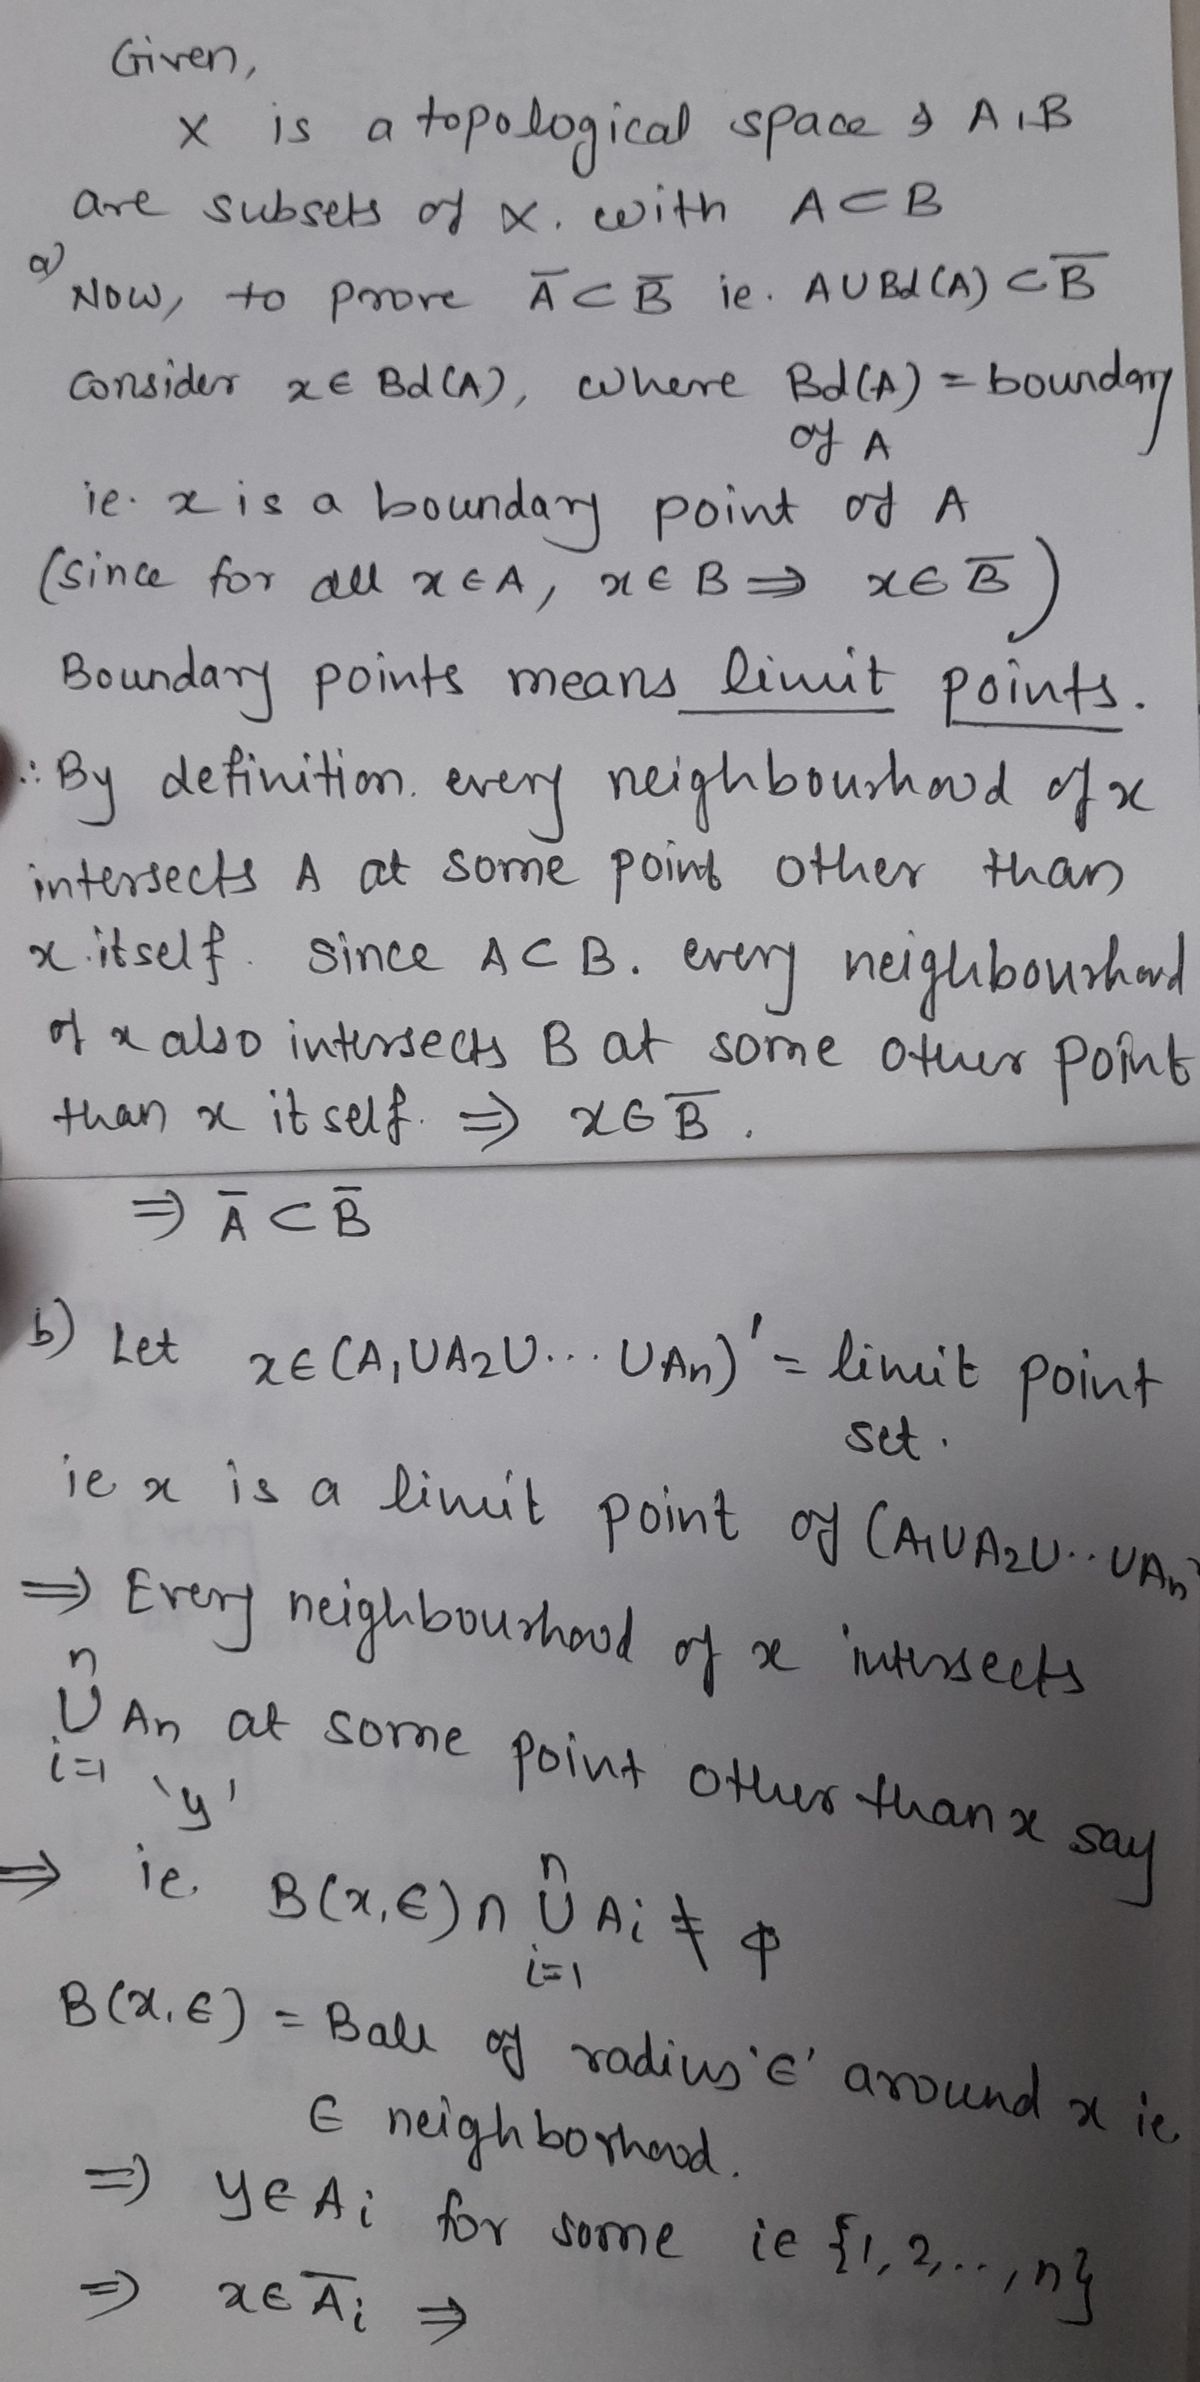 Given,
X is a topological space & A, B
are subsets of X. with A ⊂ B
a) Now, to prove A̅ ⊂ B̅ ie. A ∪ Bd(A) ⊂ B̅
consider x ∈ Bd(A), where Bd(A) = boundary
of A
ie. x is a boundary point of A
(since for all x ∈ A, x ∈ B ⇒ x ∈ B̅)
Boundary points means limit points.
∴ By definition. every neighbourhood of x
intersects A at some point other than
x itself. Since A ⊂ B. every neighbourhood
of x also intersects B at some other point
than x itself. ⇒ x ∈ B̅.
⇒ A̅ ⊂ B̅
b) Let x ∈ (A₁ ∪ A₂ ∪ ... ∪ An)' = limit point
set.
ie x is a limit point of (A₁ ∪ A₂ ∪ .. ∪ An)
⇒ Every neighbourhood of x intersects
n
∪ An at some point other than x say
i=1
'y'
⇒ ie. B(x, ϵ) ∩ n∪i=1 Ai ≠ φ
B(x, ϵ) = Ball of radius 'ϵ' around x ie
ϵ neighborhood.
⇒ y ∈ Ai for some i ∈ {1, 2, .., n}
⇒ x ∈ A̅i ⇒